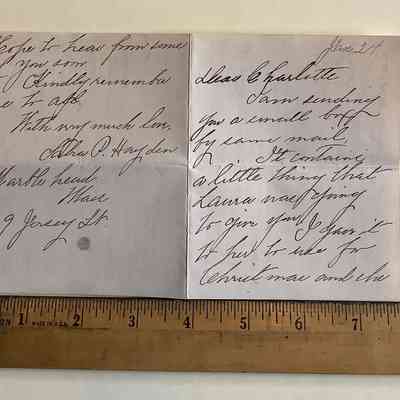 Hope to hear from some
you soon.
Kindly remember
me to all.
With very much love,
P. Hayden
Marblehead
Mass
9 Jersey St.
Dear Charlotte
I am sending
you a small box
by same mail.
It contains
a little thing that
Laura was going
to give you. I gave it
to her to use for
Christmas and she
1 2 3 4 5 6 7